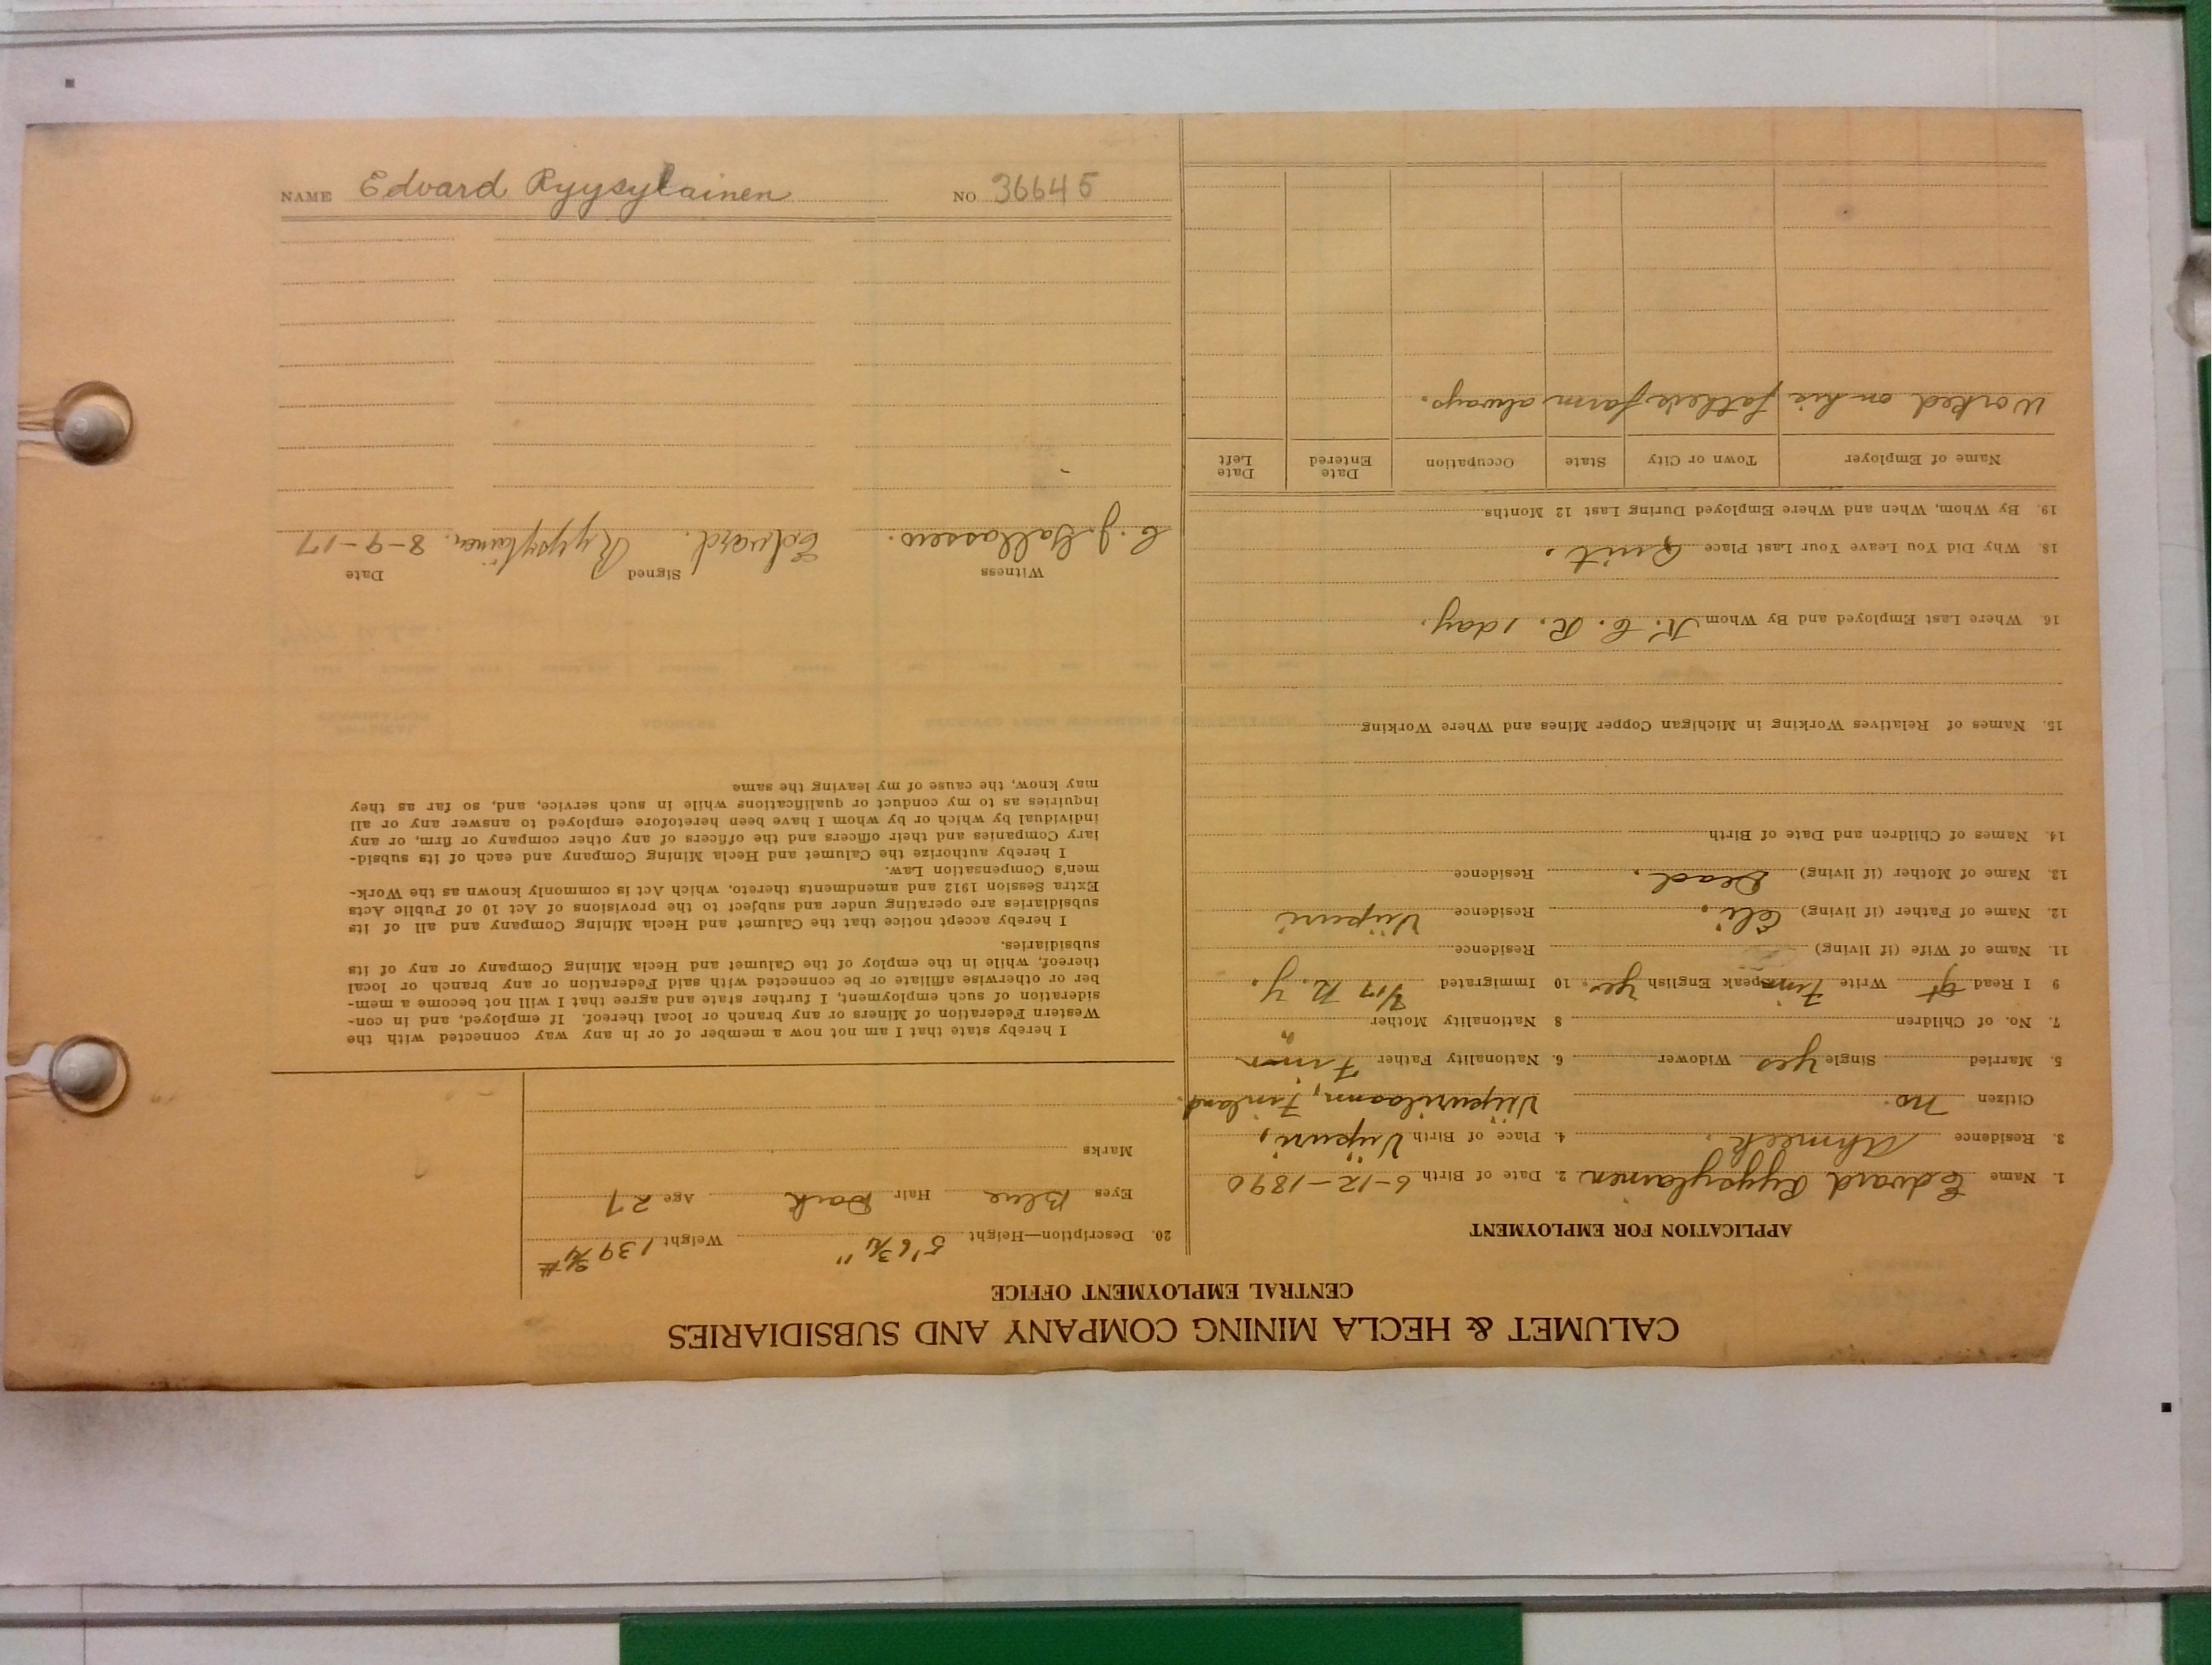 NAME Edvard Ryysylainen NO 36645
CALUMET & HECLA MINING COMPANY AND SUBSIDIARIES
CENTRAL EMPLOYMENT OFFICE
APPLICATION FOR EMPLOYMENT
1. Name Edvard Ryysylainen 2. Date of Birth 6-12-1890
3. Residence Ahmeek. 4. Place of Birth Viipuri,
Citizen no. Viipurilaann, Finland.
5. Married Single yes Widower 6. Nationality Father Finn
7. No. of Children 8 Nationality Mother
9 I Read Write Finn Speak English yes. 10 Immigrated N. Y.
11. Name of Wife (if living) Residence
12. Name of Father (if living) Eli. Residence Viipuri
13. Name of Mother (if living) Dead. Residence
14. Names of Children and Date of Birth
15. Names of Relatives Working in Michigan Copper Mines and Where Working
16. Where Last Employed and By Whom K. C. R. 1 day.
18. Why Did You Leave Your Last Place Quit.
19. By Whom, When and Where Employed During Last 12 Months
Name of Employer Town or City State Occupation Date Entered Date Left
Worked on his fathers farm always.
20. Description—Height 5'6 3/4" Weight 139 3/4 #
Eyes Blue Hair Dark Age 27
Marks
I hereby state that I am not now a member of or in any way connected with the
Western Federation of Miners or any branch or local thereof. If employed, and in con-
sideration of such employment, I further state and agree that I will not become a mem-
ber or otherwise affiliate or be connected with said Federation or any branch or local
thereof, while in the employ of the Calumet and Hecla Mining Company or any of its
subsidiaries.
I hereby accept notice that the Calumet and Hecla Mining Company and all of its
subsidiaries are operating under and subject to the provisions of Act 10 of Public Acts
Extra Session 1912 and amendments thereto, which Act is commonly known as the Work-
men's Compensation Law.
I hereby authorize the Calumet and Hecla Mining Company and each of its subsid-
iary Companies and their officers and the officers of any other company or firm, or any
individual by which or by whom I have been heretofore employed to answer any or all
inquiries as to my conduct or qualifications while in such service, and, so far as they
may know, the cause of my leaving the same
Witness Signed Date
C. J. Edvard. Ryysylainen. 8-9-17